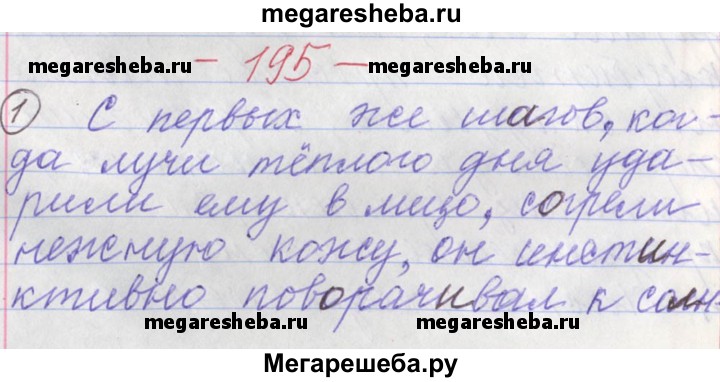 megaresheba.ru
megaresheba.ru – 195 – megaresheba.ru
1 С первых же шагов, ког-
да лучи тёплого дня уда-
рили ему в лицо, согрели
нежную кожу, он инстин-
ктивно поворачивал к солн
megaresheba.ru megaresheba.ru
Мегарешеба.ру